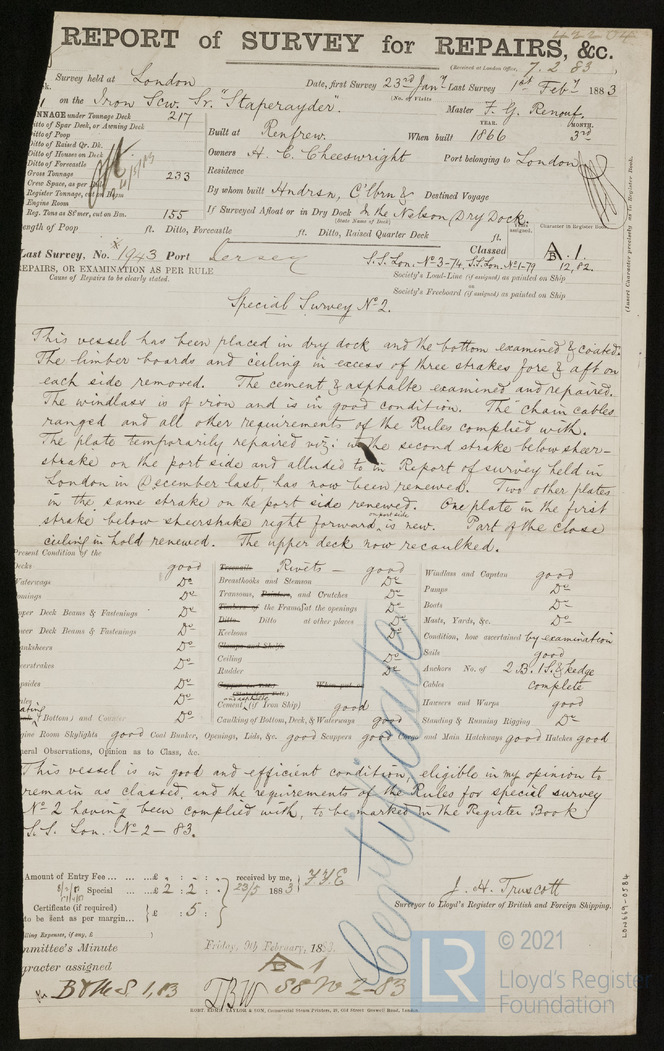 REPORT of SURVEY for REPAIRS, &c.
(Received at London Office, 7.2.83
Survey held at London Date, first Survey 23rd Jany Last Survey 1st Feby 1883
(No. of Visits
on the Iron Scw. Sr. "Staperayder." Master F. G. Renouf.
TONNAGE under Tonnage Deck 217
Ditto of Spar Deck, or Awning Deck
Ditto of Poop
Ditto of Raised Qr. Dk.
Ditto of Houses on Deck
Ditto of Forecastle
Gross Tonnage 233
Crew Space, as per
Register Tonnage, cut on Beam
Engine Room
Reg. Tons as St'mer, cut on Bm. 155
YEAR. MONTH.
Built at Renfrew. When built 1866 3rd
Owners H. C. Cheeswright Port belonging to London
Residence
By whom built Andrsn, C'lbrn & Destined Voyage
If Surveyed Afloat or in Dry Dock In the Nelson Dry Dock.
(State Name of Dock.)
Length of Poop ft. Ditto, Forecastle ft. Ditto, Raised Quarter Deck ft.
Character in Register Book
(Insert Character precisely as in Register Book.)
Last Survey, No. 1943 Port Jersey Classed A.1.
S.S. Lon. No 3-74, S.S. Lon. No 1-79 12,82.
REPAIRS, OR EXAMINATION AS PER RULE
Cause of Repairs to be clearly stated.
Society's Load-Line (if assigned) as painted on Ship
Society's Freeboard (if assigned) as painted on Ship
Special Survey No 2.
This vessel has been placed in dry dock and the bottom examined & coated.
The limber boards and ceiling in excess of three strakes fore & aft on
each side removed. The cement & asphalte examined and repaired.
The windlass is of iron and is in good condition. The chain cables
ranged and all other requirements of the Rules complied with.
The plate temporarily repaired viz: in the second strake below sheer-
strake on the port side and alluded to in Report of survey held in
London in December last, has now been renewed. Two other plates
in the same strake on the port side renewed. One plate in the first
strake below sheerstrake right forward, on port side, is new. Part of the close
ceiling in hold renewed. The upper deck now recaulked.
Present Condition of the
Decks good
Waterways Do
Comings Do
Upper Deck Beams & Fastenings Do
Lower Deck Beams & Fastenings Do
Planksheers Do
Sheerstrakes Do
Topsides Do
Do
(Bottom) and Do
Treenails Rivets — good
Breasthooks and Stemson Do
Transoms, Pointers, and Crutches Do
Timbers of the Frames at the openings Do
Ditto Ditto at other places Do
Keelsons Do
Clamps and Shelfs
Ceiling Do
Rudder Do
Cement and asphalte (if Iron Ship) good
Caulking of Bottom, Deck, & Waterways good
Windlass and Capstan good
Pumps Do
Boats Do
Masts, Yards, &c. Do
Condition, how ascertained by examination
Sails good
Anchors No. of 2 B. 1 S. & kedge
Cables complete
Hawsers and Warps good
Standing & Running Rigging Do
Engine Room Skylights good Coal Bunker, Openings, Lids, &c. good Scuppers good Cargo and Main Hatchways good Hatches good
General Observations, Opinion as to Class, &c.
This vessel is in good and efficient condition, eligible in my opinion to
remain as classed, and the requirements of the Rules for special survey
No 2 having been complied with, to be marked in the Register Book
S.S. Lon. No 2 - 83.
Certificate
Amount of Entry Fee ... ... £ : :
Special ... £ 2 : 2 :
received by me, 23/5 1883
Certificate (if required) £ : 5 :
to be sent as per margin...
J. H. Truscott
Surveyor to Lloyd's Register of British and Foreign Shipping.
Travelling Expenses, if any, £
Committee's Minute Friday, 9th February, 1883.
Character assigned A 1
B & M S. 1,83 SS No 2-83
ROBT. EDMD. TAYLOR & SON, Commercial Steam Printers, 19, Old Street, Goswell Road, London
LON669-0584
LR
© 2021
Lloyd's Register
Foundation